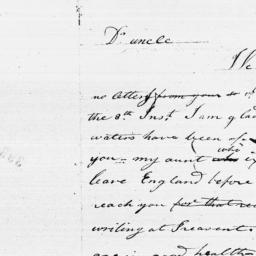 Dr uncle
no letters from your
the 8th Inst I am glad
waters have been of
who
you - my aunt who
leave England before
reach you for that rea
writing at Preavent
good health